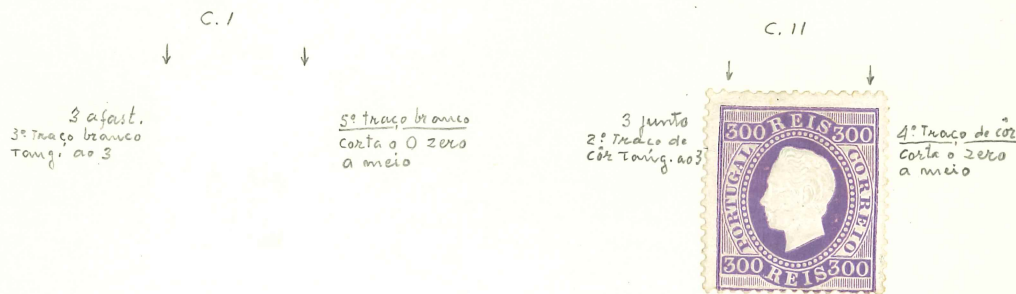 C. I
3 afast.
3º Traço branco
Tang. ao 3
5º traço branco
corta o 0 zero
a meio
C. II
3 junto
2º Traço de
côr Tang. ao 3
300 REIS 300
PORTUGAL
CORREIO
300 REIS 300
4º Traço de côr
corta o zero
a meio